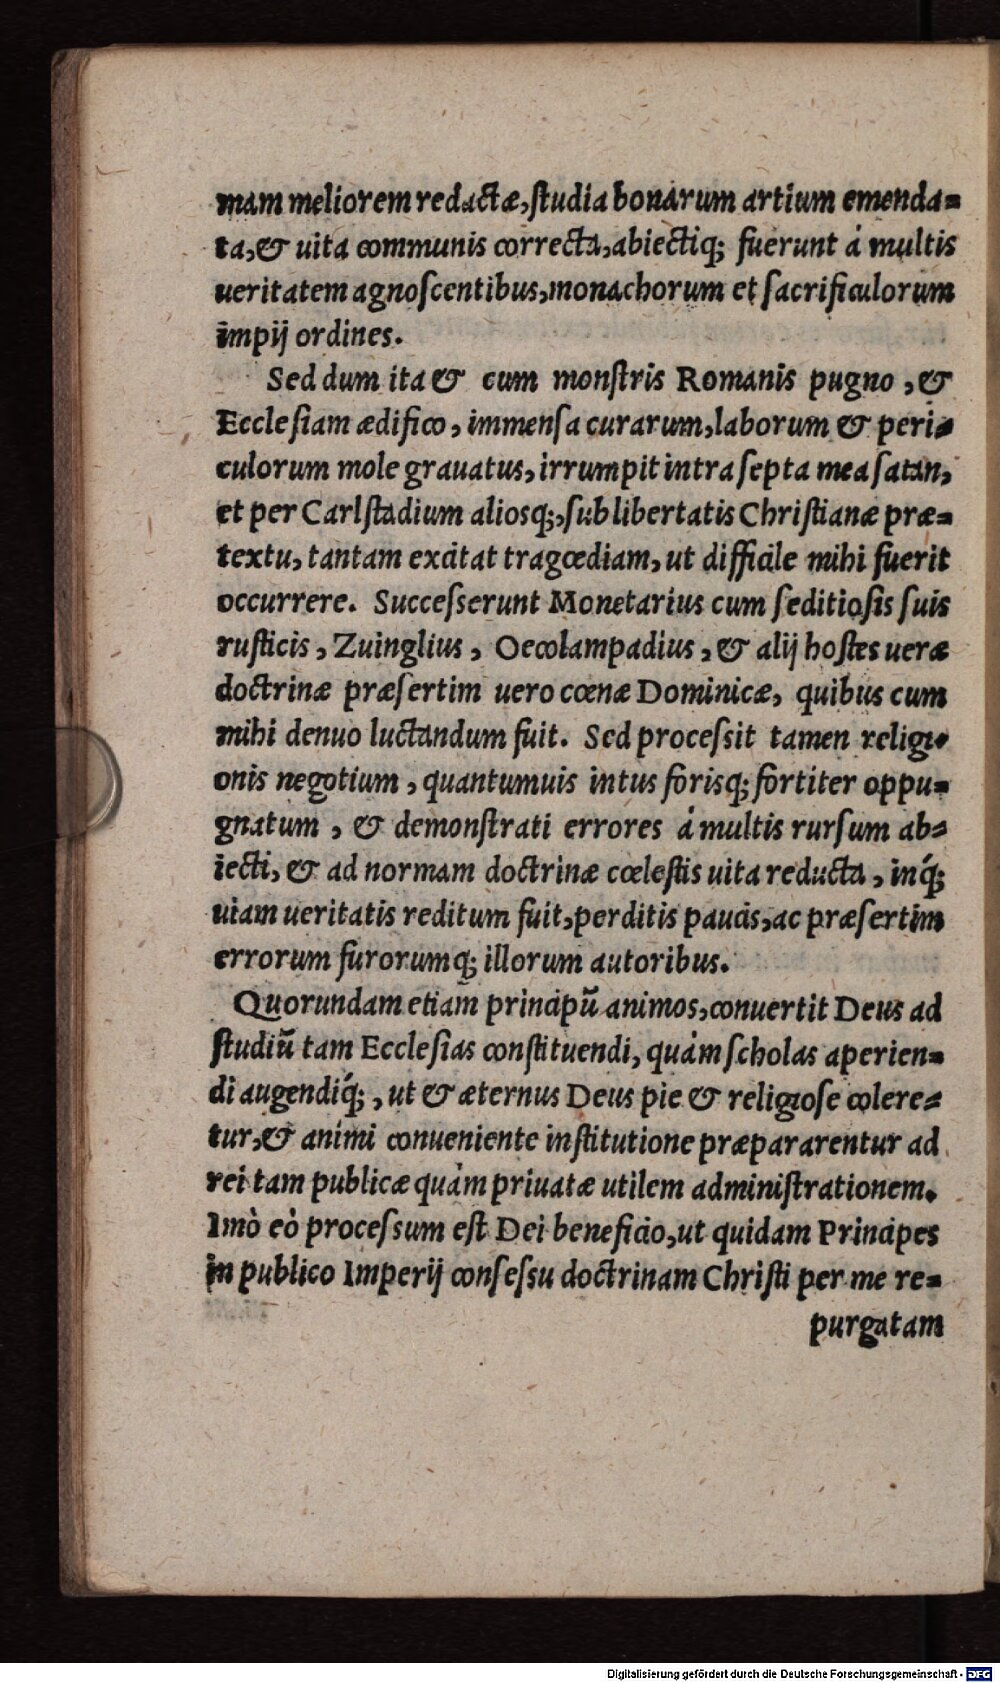 mam meliorem redactæ, ſtudia bonarum artium emenda=
ta, & uita communis correcta, abiectiq; fuerunt á multis
ueritatem agnoſcentibus, monachorum et ſacrificulorum
impij ordines.
Sed dum ita & cum monſtris Romanis pugno, &
Eccleſiam ædifico, immenſa curarum, laborum & peri=
culorum mole grauatus, irrumpit intra ſepta mea ſatan,
et per Carlſtadium aliosq;, ſub libertatis Chriſtianæ præ=
textu, tantam excitat tragœdiam, ut difficile mihi fuerit
occurrere. Succeſſerunt Monetarius cum ſeditioſis ſuis
ruſticis, Zuinglius, Oecolampadius, & alij hoſtes ueræ
doctrinæ præſertim uero cœnæ Dominicæ, quibus cum
mihi denuo luctandum fuit. Sed proceſsit tamen religi=
onis negotium, quantumuis intus forisq; fortiter oppu=
gnatum, & demonſtrati errores á multis rurſum ab=
iecti, & ad normam doctrinæ cœleſtis uita reducta, inq́;
uiam ueritatis reditum fuit, perditis paucis, ac præſertim
errorum furorumq; illorum autoribus.
Quorundam etiam principũ animos, conuertit Deus ad
ſtudiũ tam Eccleſias conſtituendi, quàm ſcholas aperien=
di augendiq́;, ut & æternus Deus pie & religioſe colere=
tur, & animi conueniente inſtitutione præpararentur ad
rei tam publicæ quàm priuatæ utilem adminiſtrationem.
Imò eò proceſsum eſt Dei beneficio, ut quidam Principes
in publico Imperij conſeſsu doctrinam Chriſti per me re=
purgatam
Digitalisierung gefördert durch die Deutsche Forschungsgemeinschaft - DFG